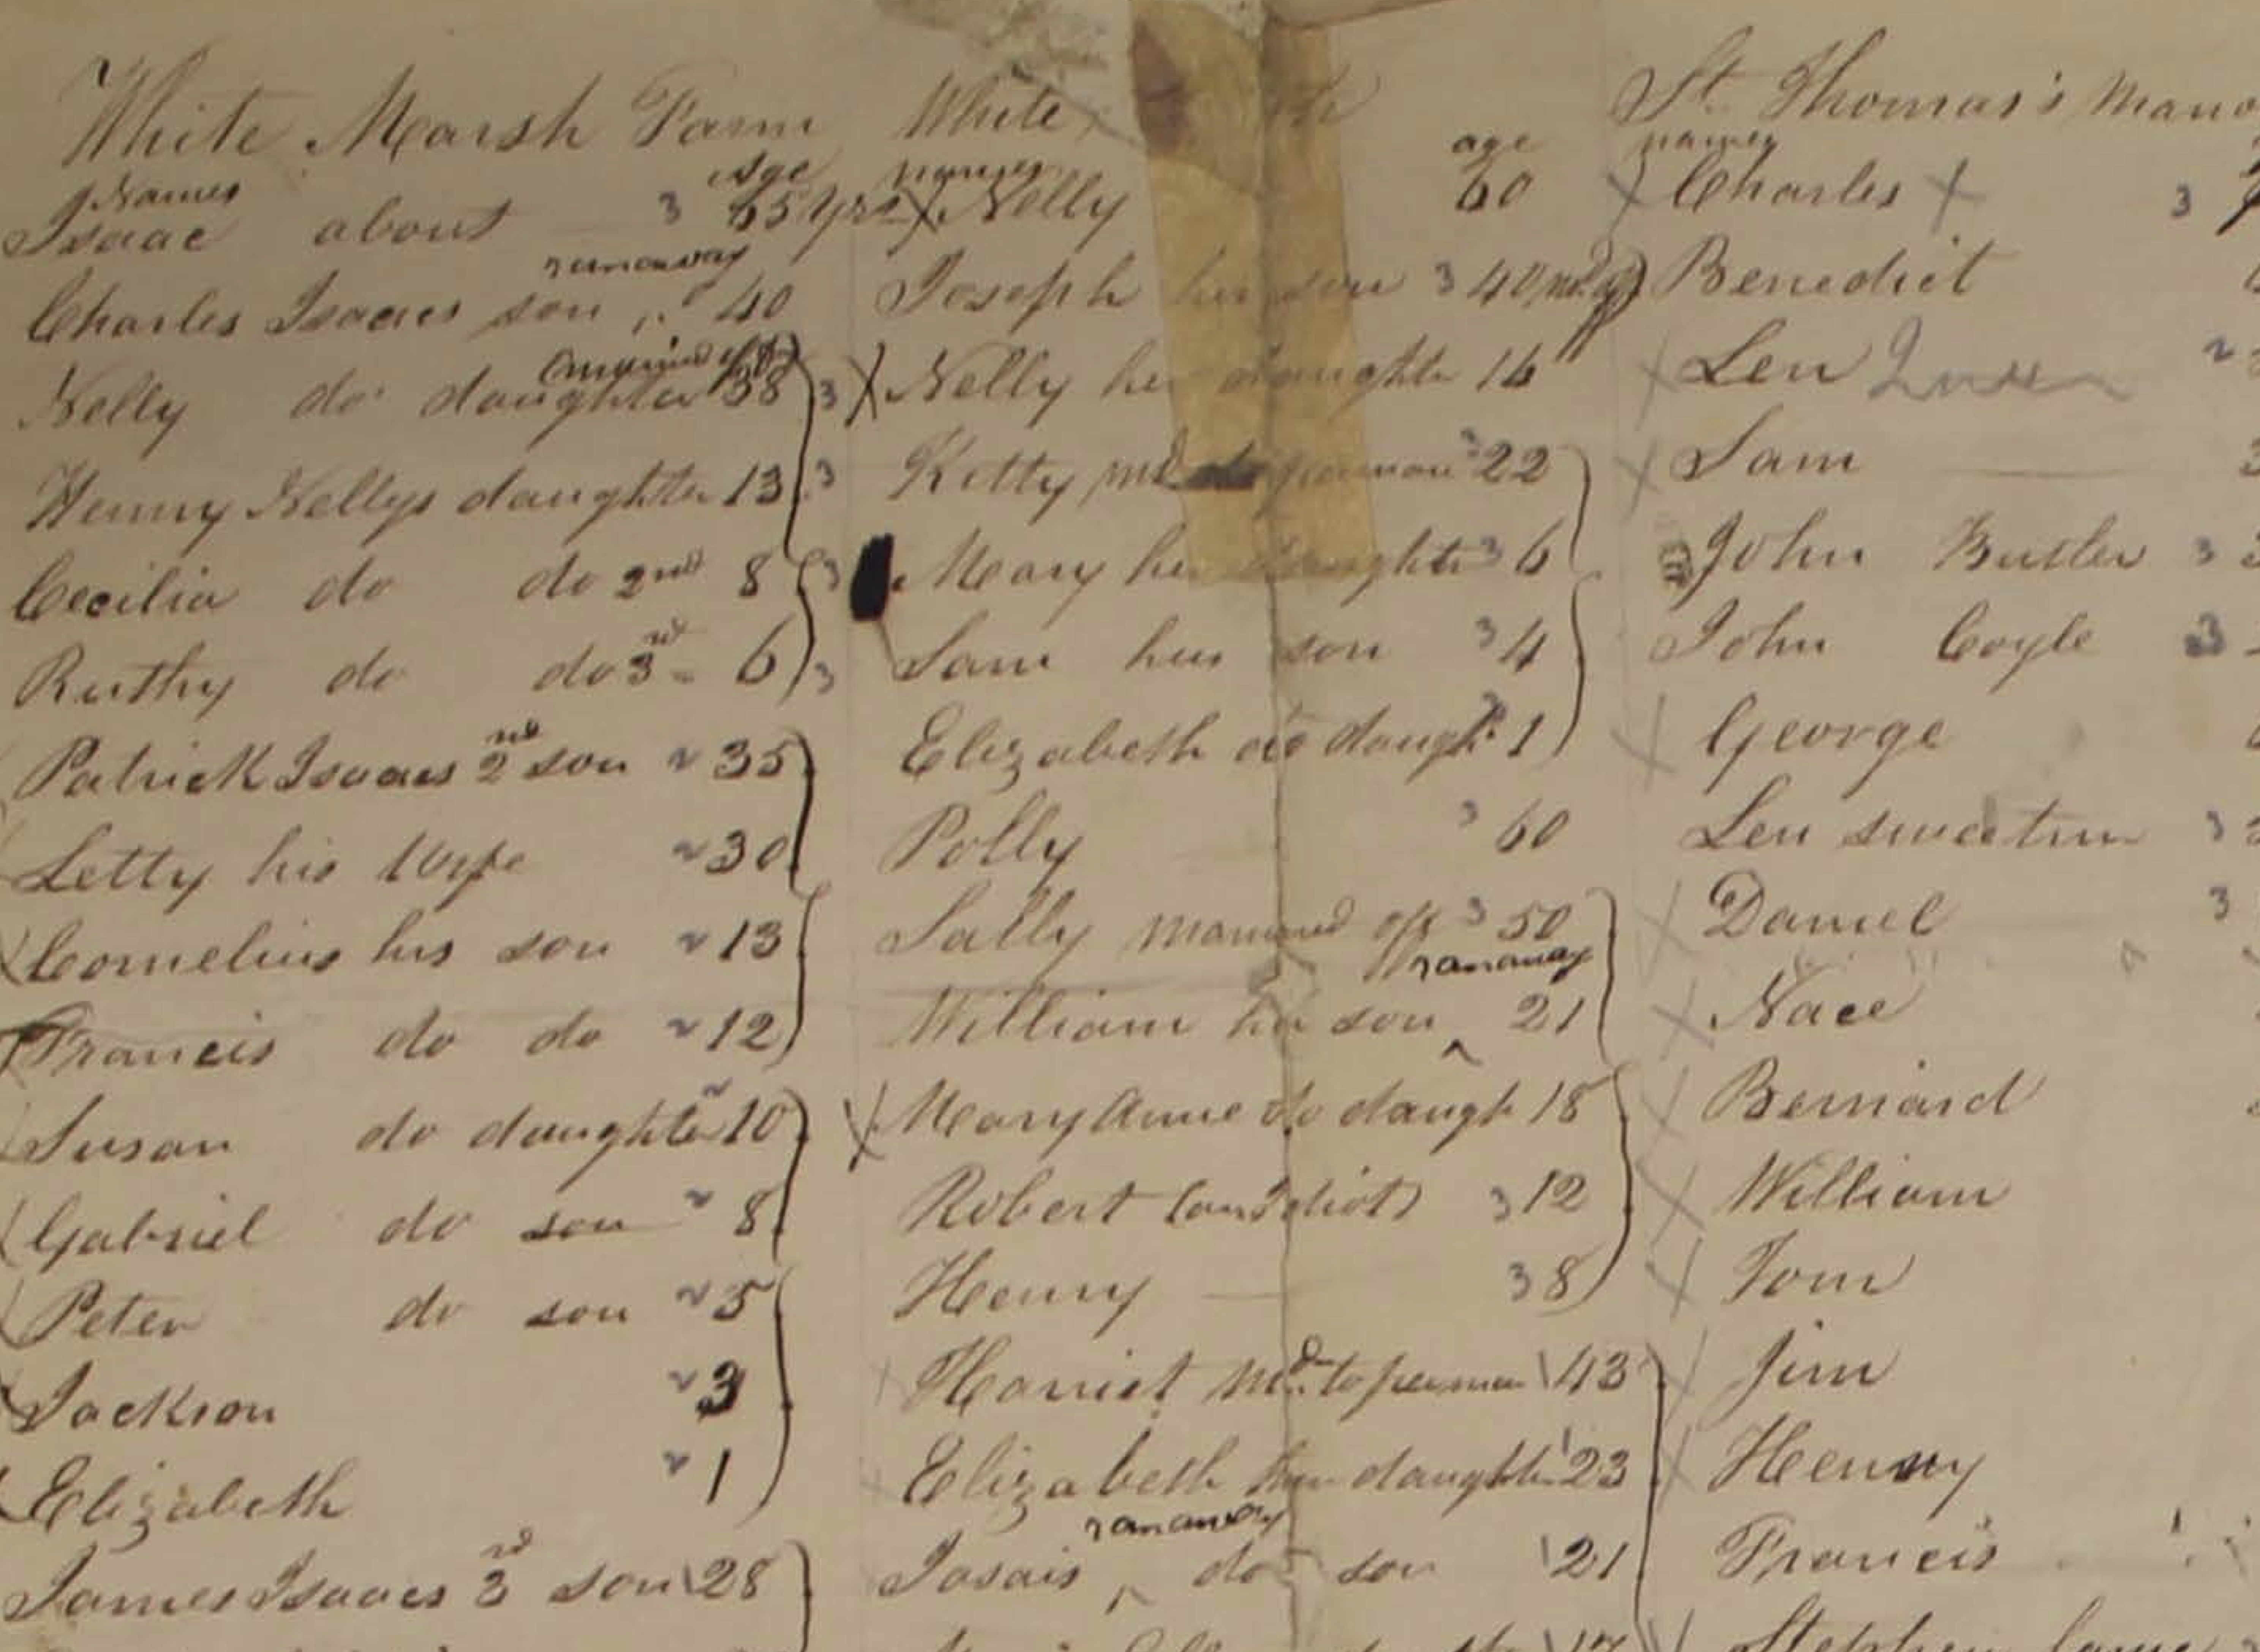 White Marsh Farm
Names Age
Isaac about 3 65 yrs
runaway
Charles Isaacs son 40
married off
Nelly do daughter 38 3
Henny Nellys daughter 13 3
Cecilia do do 2nd 8 3
Ruthy do do 3rd 6 3
Patrick Isaacs 2nd son 2 35
Letty his wife 2 30
Cornelius his son 2 13
Francis do do 2 12
Susan do daughter 2 10
Gabriel do son 2 8
Peter do son 2 5
Jackson 2 3
Elizabeth 2 1
James Isaacs 3rd son 28
White
names age
X Nelly 60
Joseph her son 3 40
X Nelly her daughter 16
Kitty md 3 22
Mary her daughter 3 6
Sam her son 3 4
Elizabeth do daugh 3 1
Polly 3 60
Sally married off 3 50
runaway
William her son ^ 21
X Mary Anne do daugh 18
Robert (an Idiot) 3 12
Henny 3 8
Harriet md. to freeman 43
Elizabeth her daughter 23
runaway
Josais ^ do son 21
St. Thomas's Mano
names
X Charles X 3
Benedict
X Len Queen 2
X Sam 3
John Butler 3 3
John Coyle 3
X George
Len sweetun 3 3
X Daniel 3
X Nace
X Bernard
X William
X Tom
X Jim
X Henny
Francis
Stephen